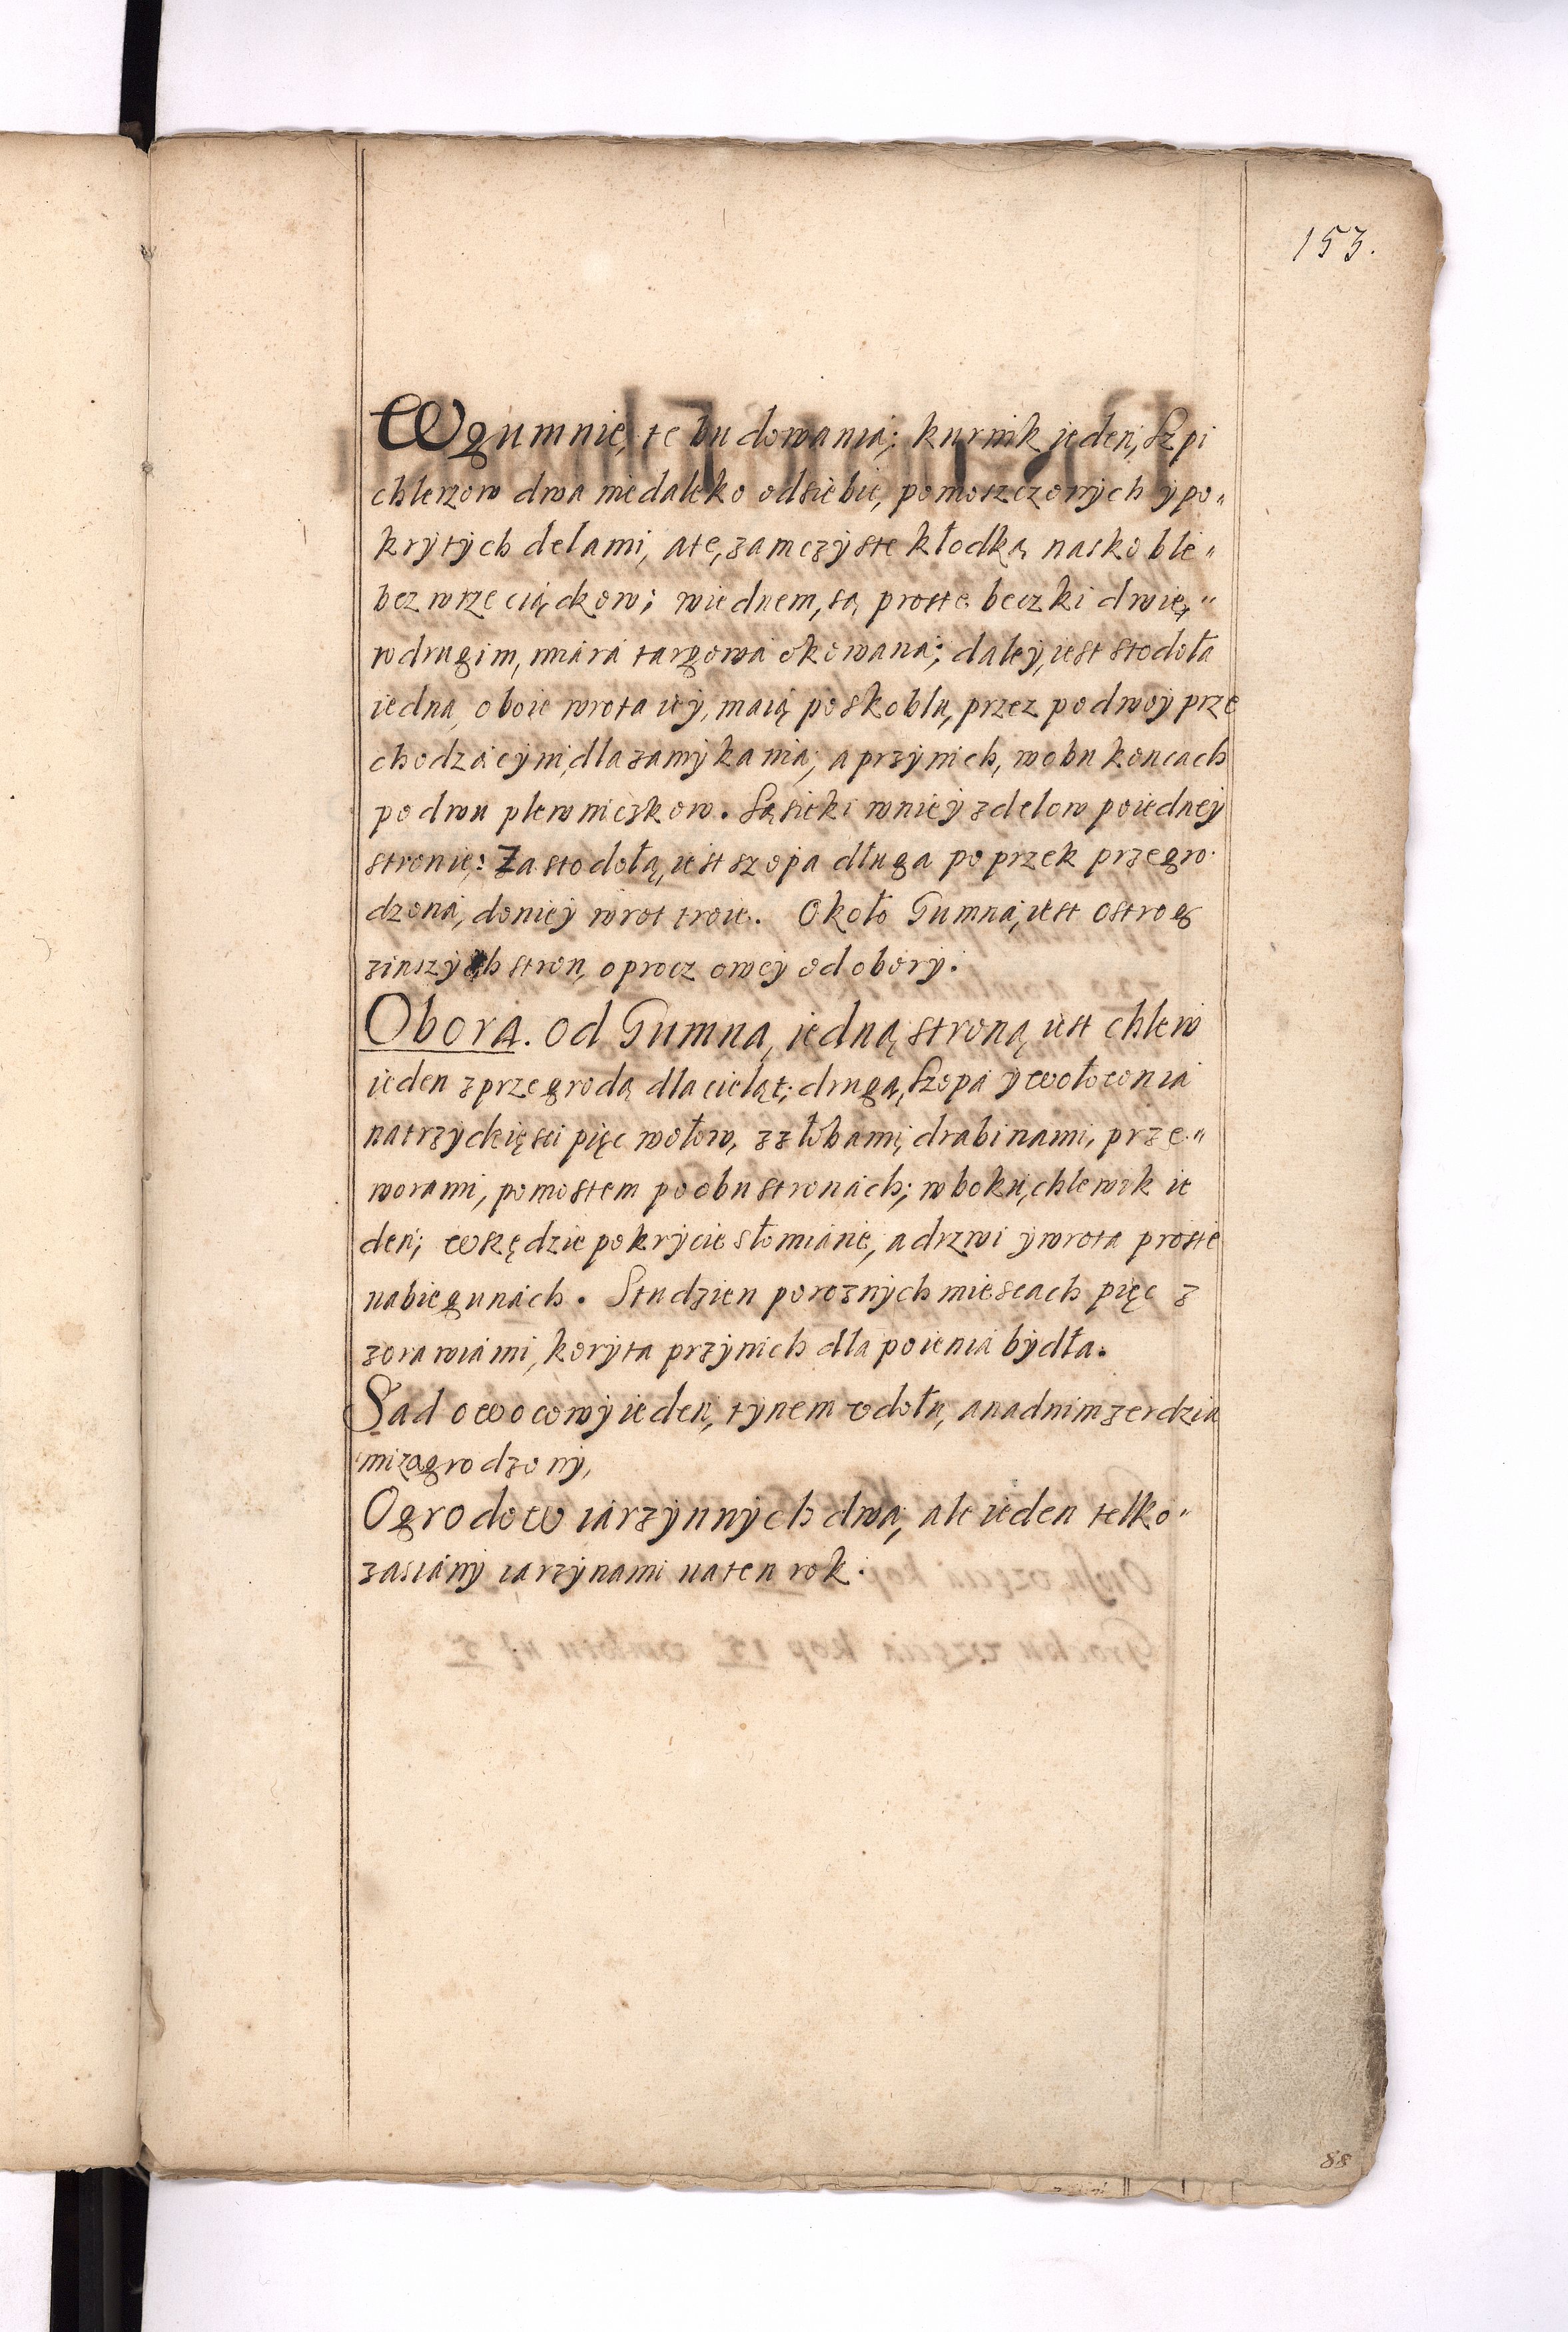 153.
W gumnie, te budowania; kurnik ieden, Szpi
chlerzow dwa niedaleko odsiebie, pomoszczonych ypo„
krytych delami, ate, zamczyste kłodką naskoble„
bez wrzeciąckow; wiednem, są proste beczki dwie,„
wdrugim, miara targowa okowana; daley, iest stodoła
iedna, oboie wrota iey, maią poskoblu, przez podwoy prze
chodzącym, dlazamykania; aprzynich, wobu koncach
podwu plewniczkow. Sąsieki wniey zdelow poiedney
stronie: Za stodołą, iest szopa długa poprzek przegro
dzona, doniey wrot troie. Około Gumna, iest Ostrog
zinszych stron, oprocz owey od obory.
Obora. od Gumna, iedną stroną iest chlew
ieden zprzegrodą dla cieląt; drugą, Szopa ywołownia
natrzydzięsci pięc wołow, zzłobami, drabinami, prze„
worami, pomostem poobu stronach; wboku, chlewik ie
den; wszędzie pokrycie słomiane, adrzwi ywrota proste
nabiegunach. Studzien poroznych miescach pięc z
zorawiami, koryta przynich dla poienia bydła.
Sad owocowy ieden, tynem zdołu, anadnim zerdzia
mi zagrodzony,
Ogrodow iarzynnych dwa, ale ieden telko„
zasiany iarzynami naten rok.
88